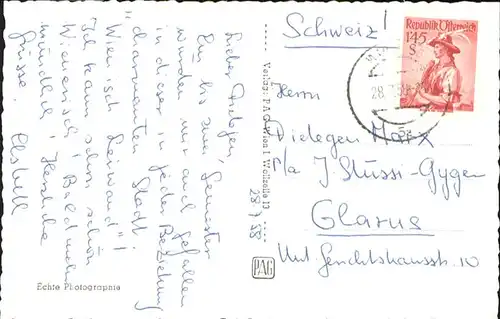 Lieber Dielegen,
Ein bis zwei Semester
würden mir auch gefallen
in dieser in jeder Beziehung
charmanten Stadt.
"Wienisch leiwand"!
Ich kann schon schön
Wienerisch! Bald mehr
mündlich! Herzliche
Grüsse.
Echte Photographie
Verlag: P.A.G. Wien I, Wollzeile 13
28/7 58
PAG
Schweiz!
Republik Österreich
1'45
S
28.
Herrn
Dielegen Marx
p/a J. Stüssi-Gyger
Glarus
Unt. Gerichtshausstr. 10